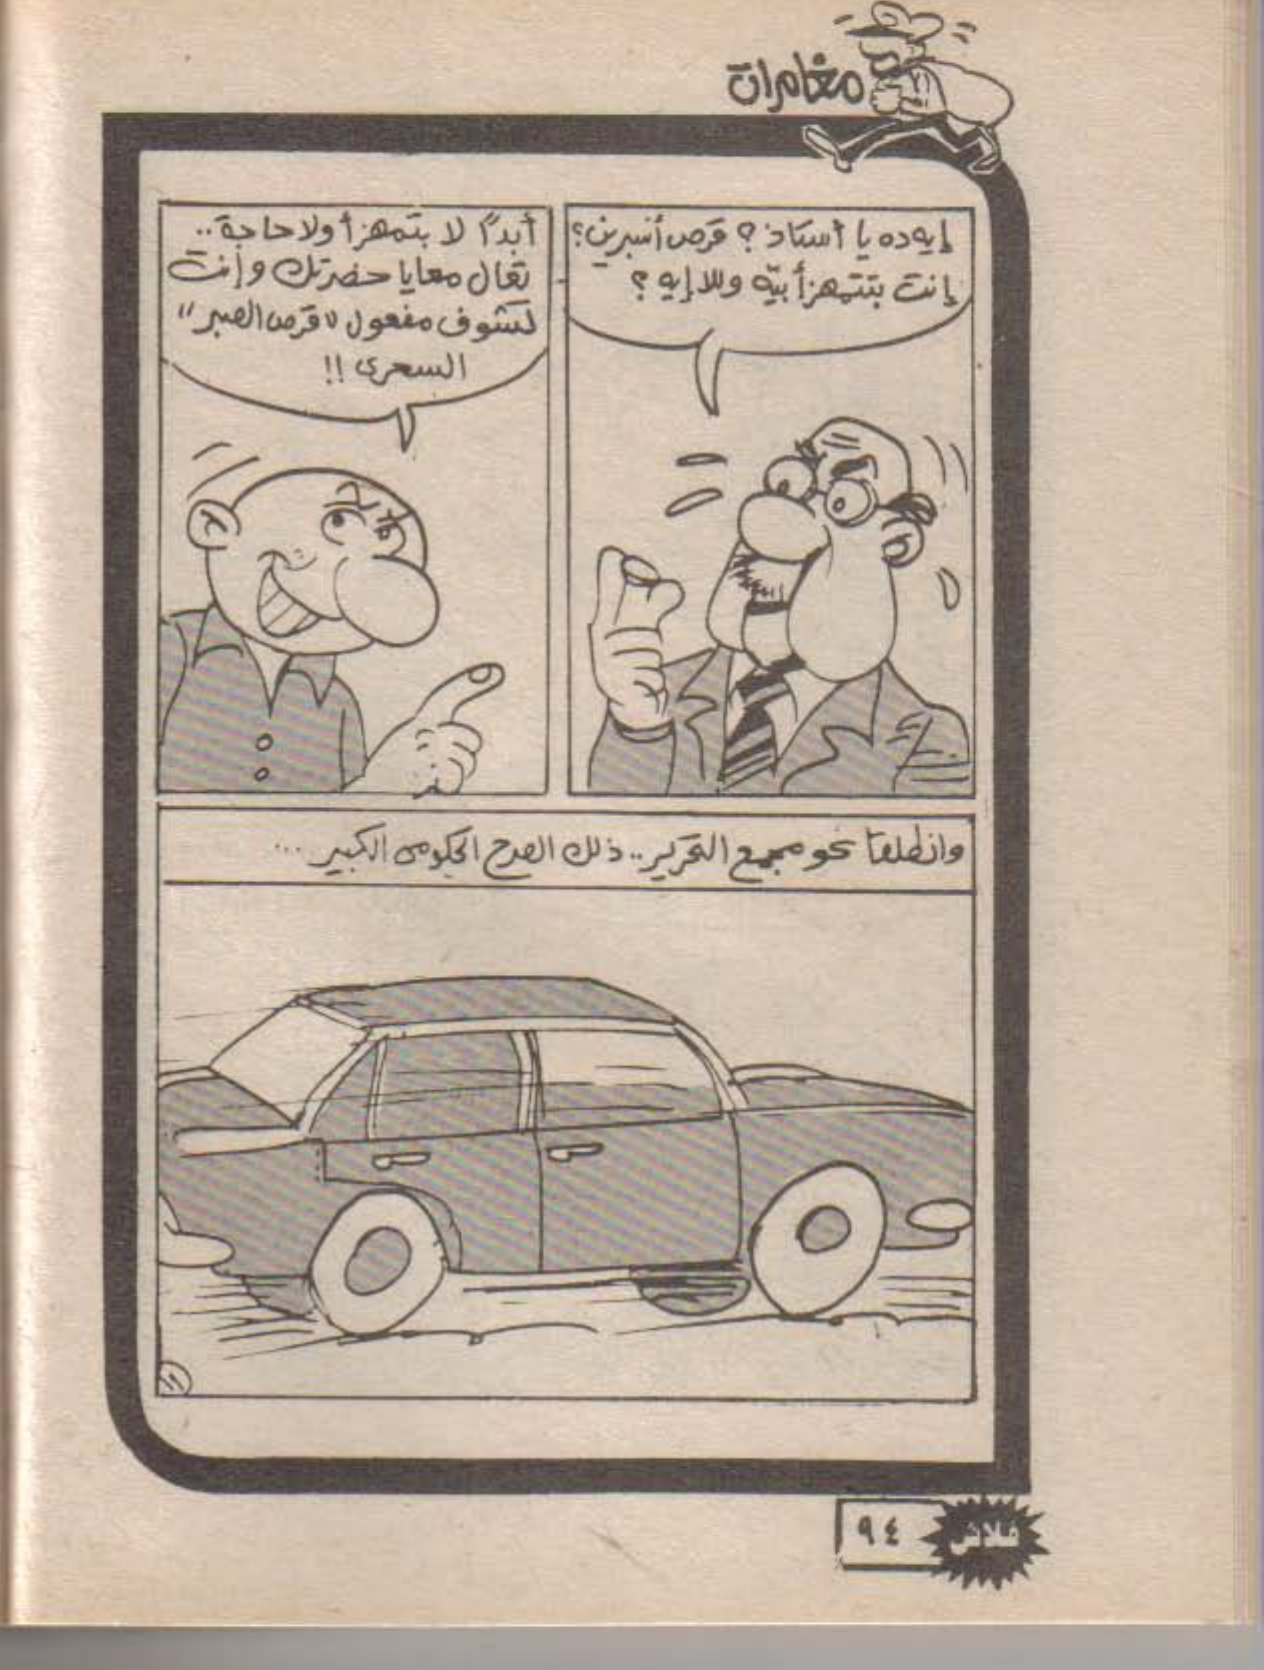 مغامرات
إيه ده يا أستاذ؟ قرص أسبرين؟
إنت بتتمهزأ بيّه وللا إيه؟
أبدًا لا بتمهزأ ولا حاجة..
تعال معايا حضرتك وإنت
تشوف مفعول "قرص الصبر"
السحرى!!
وانطلقا نحو مجمع التحرير.. ذلك الصرح الحكومى الكبير...
٩٤
فلاش